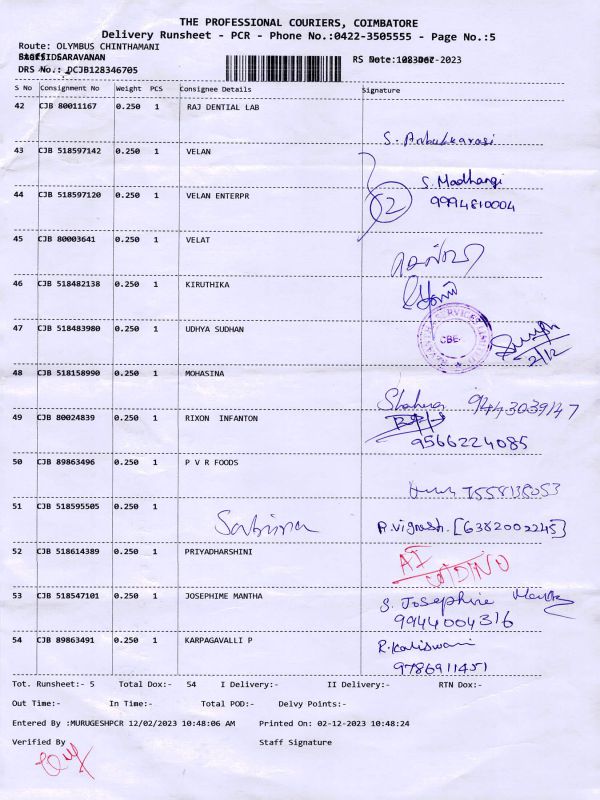 THE PROFESSIONAL COURIERS, COIMBATORE
Delivery Runsheet - PCR - Phone No.:0422-3505555 - Page No.:5
Route: OLYMBUS CHINTHAMANI
SARAVANAN
DRS No.: DCJB128346705
S No Consignment No Weight PCS Consignee Details Signature
42 CJB 80011167 0.250 1 RAJ DENTIAL LAB
43 CJB 518597142 0.250 1 VELAN
S. Madhangi
44 CJB 518597120 0.250 1 VELAN ENTERPR
2 9994810004
45 CJB 80003641 0.250 1 VELAT
46 CJB 518482138 0.250 1 KIRUTHIKA
47 CJB 518483980 0.250 1 UDHYA SUDHAN
CBE
2/12
48 CJB 518158990 0.250 1 MOHASINA
9443039147
49 CJB 80024839 0.250 1 RIXON INFANTON
9566224085
50 CJB 89863496 0.250 1 P V R FOODS
51 CJB 518595505 0.250 1
Sabima R.Vignash. [6382002245]
52 CJB 518614389 0.250 1 PRIYADHARSHINI
53 CJB 518547101 0.250 1 JOSEPHIME MANTHA
S. Josephine
9944004316
54 CJB 89863491 0.250 1 KARPAGAVALLI P
R.Kaliswari
9786911451
Tot. Runsheet:- 5 Total Dox:- 54 I Delivery:- II Delivery:- RTN Dox:-
Out Time:- In Time:- Total POD:- Delvy Points:-
Entered By :MURUGESHPCR 12/02/2023 10:48:06 AM Printed On: 02-12-2023 10:48:24
Verified By Staff Signature